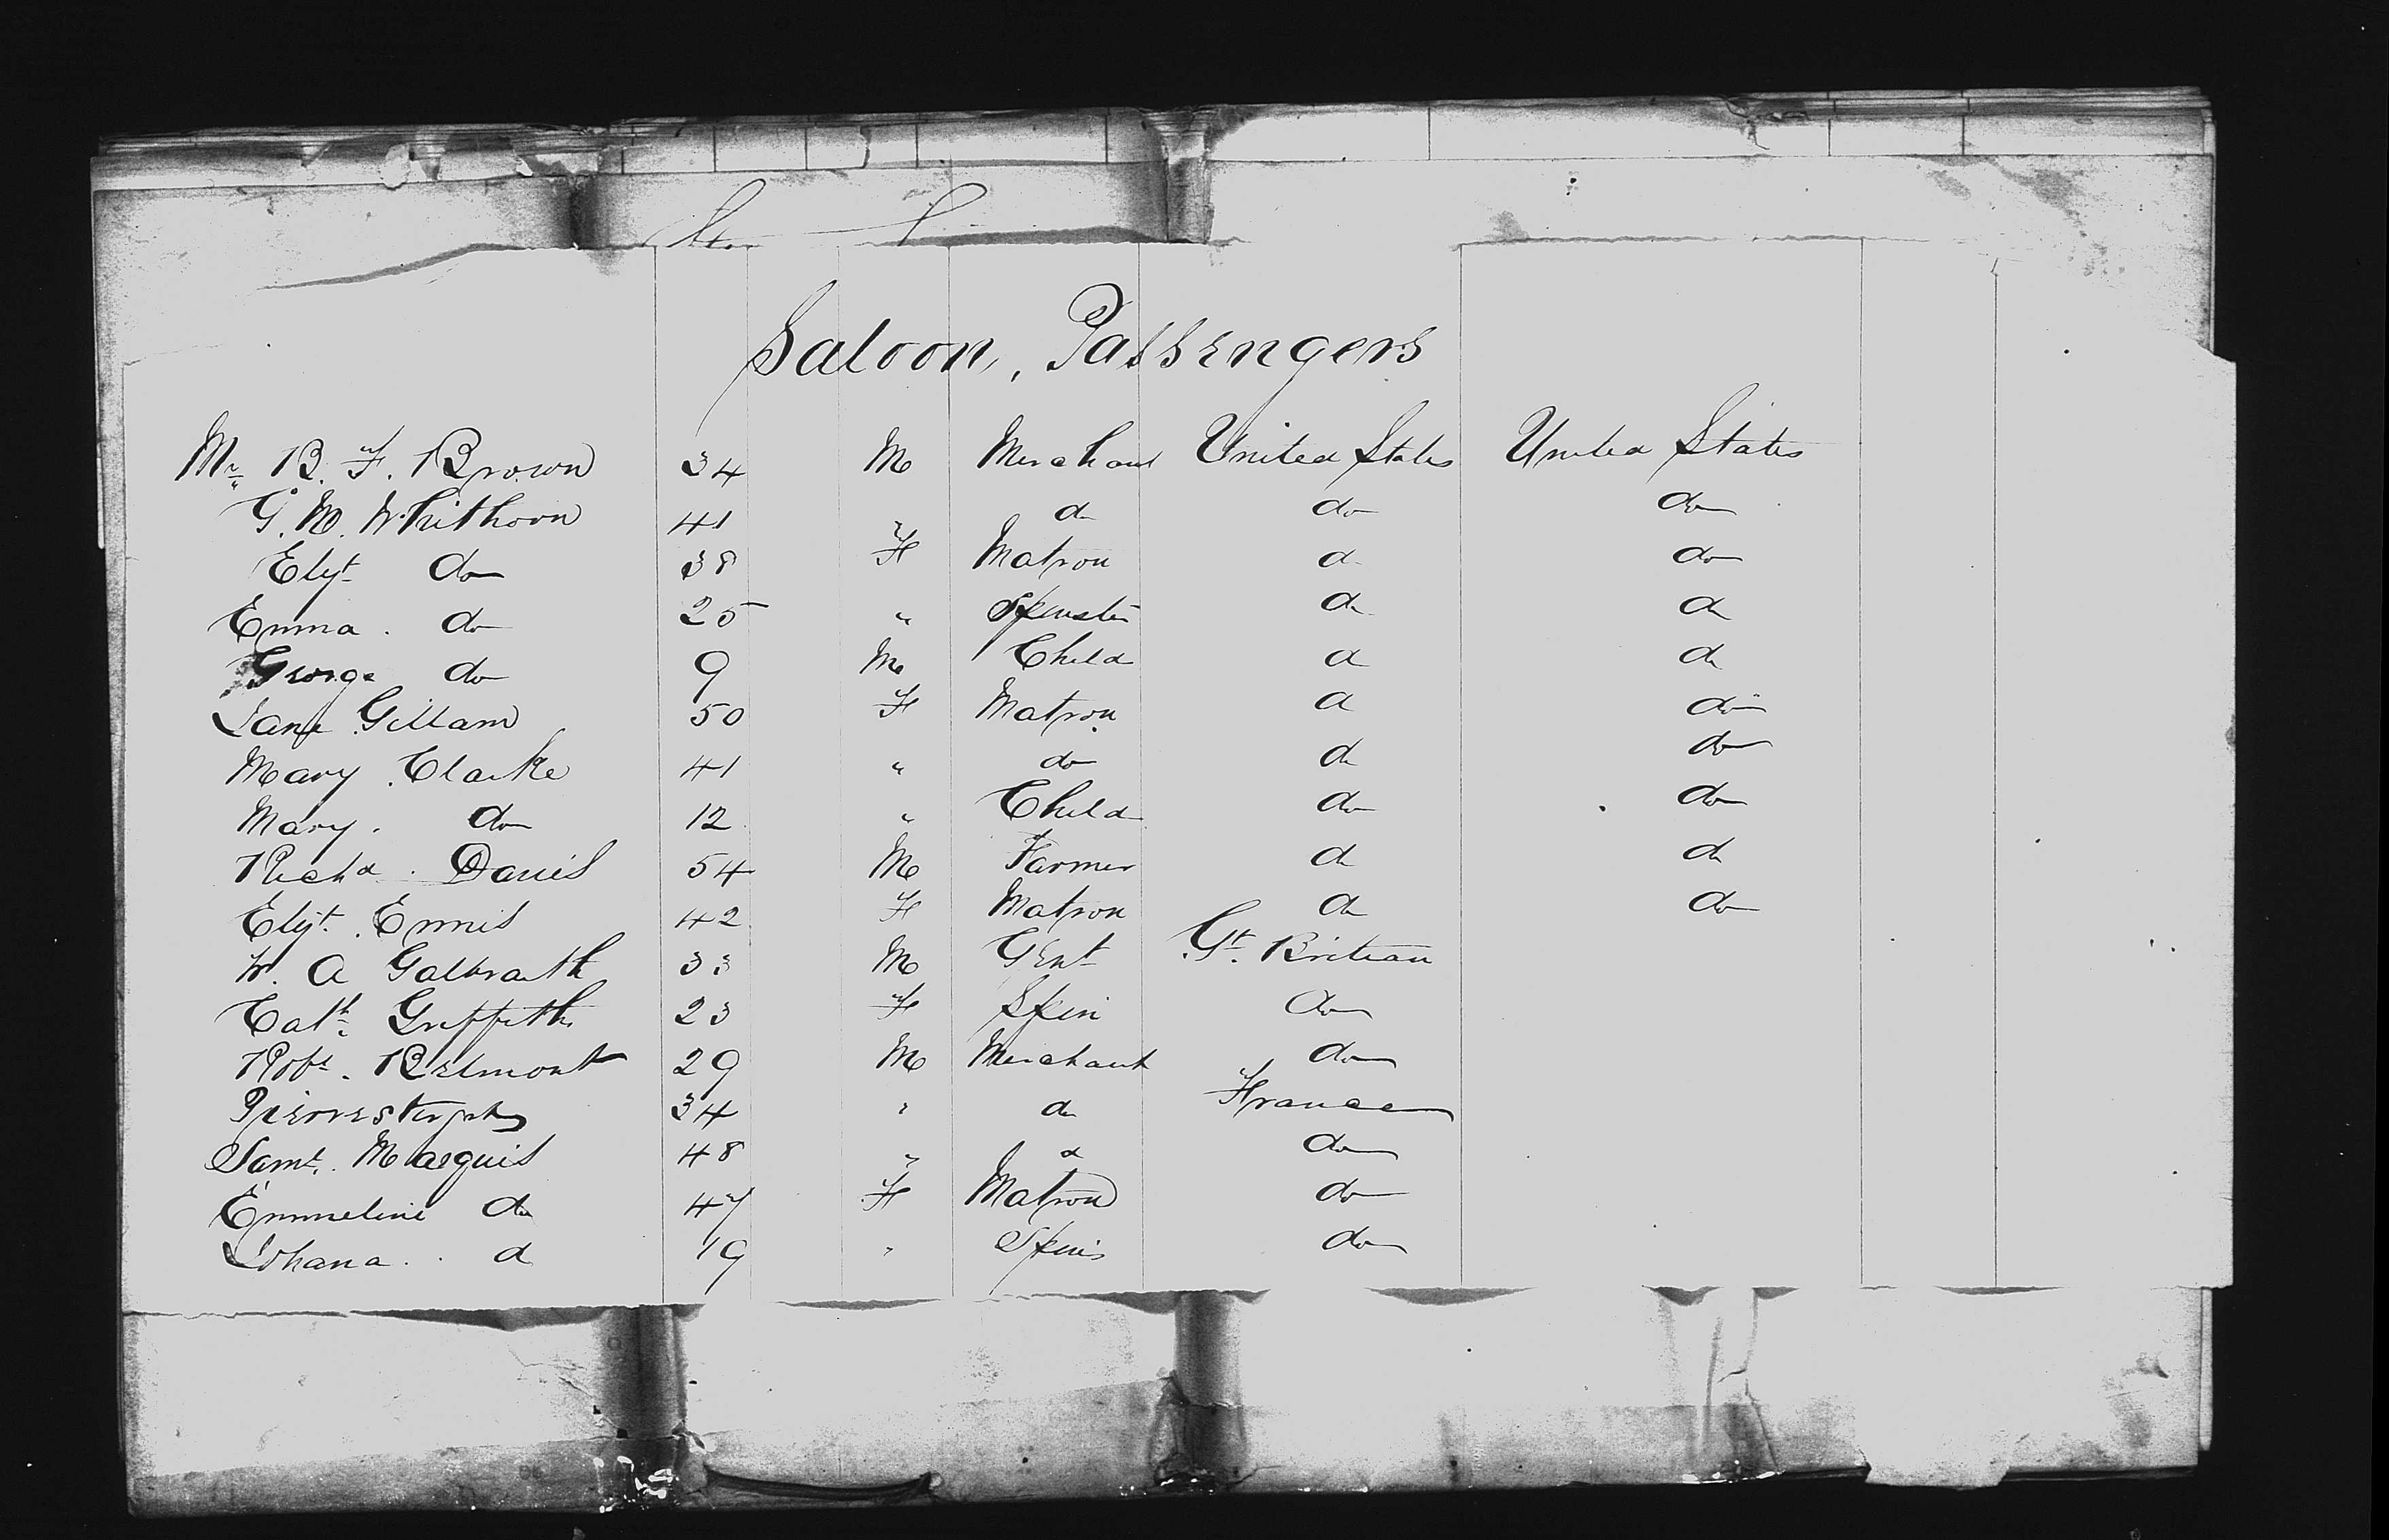 Saloon, Passengers
Mr. B. F. Brown 34 M Merchant United States United States
G. M. Whithorn 41 " do do do
Elizt. do 38 F Matron do do
Emma. do 25 " Spinster do do
George do 9 M Child do do
Jane Gillam 50 F Matron do do
Mary Clarke 41 " do do do
Mary. do 12 " Child do do
Richd. Davis 54 M Farmer do do
Elizt. Ennis 42 F Matron do do
W. A Galbraith 33 M Gent Gt. Britian
Cath. Griffith 23 F Spin do
Robt. Belmont 29 M Merchant do
34 " do France
Saml. Marquis 48 " do do
Emmeline do 47 F Matron do
Johana.. do 19 " Spins do